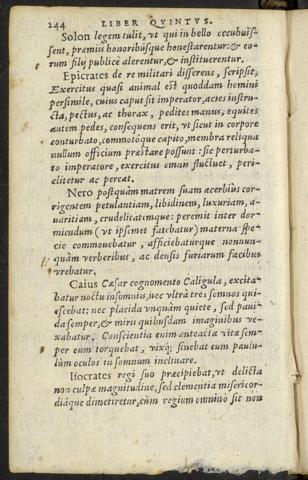 244 LIBER QVINTVS.
Solon legem tulit, vt qui in bello occubuis-
sent, præmiis honoribúsque honestarentur: & eo-
rum filij publicè alerentur, & instituerentur.
Epicrates de re militari disserens, scripsit,
Exercitus quasi animal est quoddam homini
persimile, cuius caput sit imperator, acies instru-
cta, pectus, ac thorax, pedites manus, equites
autem pedes, consequens erit, vt sicut in corpore
conturbato, commotóque capite, membra reliqua
nullum officium præstare possunt: sic perturba-
to imperatore, exercitus omnis fluctuet, peri-
clitetur ac pereat.
Nero postquàm matrem suam acerbiùs cor-
rigentem petulantiam, libidinem, luxuriam, a-
uaritiam, crudelitatémque: peremit inter dor-
miendum (vt ipsemet fatebatur) materna spe-
cie commouebatur, afficiebatúrque nonnun-
quàm verberibus, ac densis furiarum facibus
vrebatur.
Caius Cæsar cognomento Caligula, excita-
batur noctu insomniis, nec vltrà tres somnos qui-
escebat: nec placida vnquàm quiete, sed paui-
da semper, & miris quibusdam imaginibus ve-
xabatur. Conscientia eum anteactæ vitæ sem-
per eum torquebat, vixq́; sinebat eum paulu-
lùm oculos in somnum inclinare.
Isocrates regi suo præcipiebat, vt delicta
non culpæ magnitudine, sed clementia misericor-
diáque dimetiretur, cùm regium omninò sit non